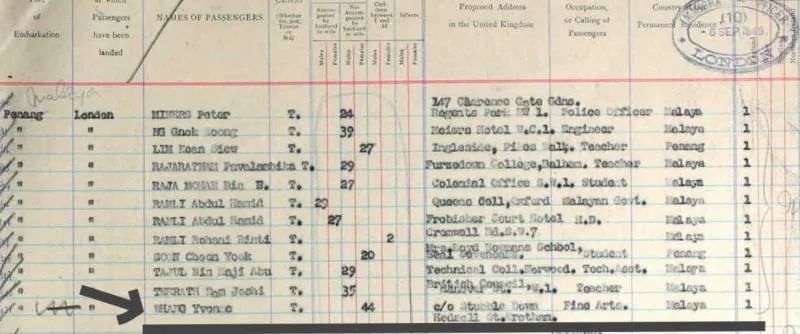 of
Embarkation
at which
Passengers
have been
landed
NAMES OF PASSENGERS
CLASS
(Whether
1st, 2nd,
Tourist
or
3rd)
Accom-
panied
by
husband
or wife
Not
Accom-
panied
by
husband
or wife
Chil-
dren
between
1 and
12
Infants
Males
Females
Males
Females
Males
Females
Males
Females
Proposed Address
in the United Kingdom
Occupation,
or Calling of
Passengers
Country of
Permanent Residence
IMMIGRATION OFFICER
(110)
6 SEP 1949
LONDON
Malaya
147 Clarence Gate Gdns.
Penang London MINERS Peter T. 24 Regents Park NW 1. Police Officer Malaya 1
" " NG Gnok T. 39 Hotel W.C.1. Engineer Malaya 1
" " LIM Kean Siew T. 27 Ingleside, Teacher Penang 1
" " RAJARATNAM T. 29 College, Balham. Teacher Malaya 1
" " RAJA Bin T. 27 Colonial Office S.W.1. Student Malaya 1
" " RAMLI Abdul Hamid T. 29 Queens Coll, Oxford Malayan Govt. Malaya 1
" " RAMLI Abdul Hamid T. 27 Frobisher Court Hotel H.D. Malaya 1
" " RAMLI Rohani Binti T. 2 Cromwell Rd. S.W.7 Malaya 1
Mrs. School,
" " SOON Choon Yook T. 20 Seal Sevenoaks. Student Penang 1
" " TAJUL Bin Haji Abu T. 29 Technical Coll. Tech. Asst. Malaya 1
British Council,
" " Ram Joshi T. 35 W.1. Teacher Malaya 1
" " WHANG Yvonne T. 44 c/o Stubble Down Fine Arts. Malaya 1
St. Wrotham.